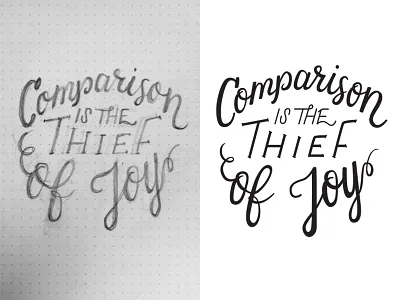 Comparison
IS THE
THIEF
of Joy
Comparison
IS THE
THIEF
of Joy